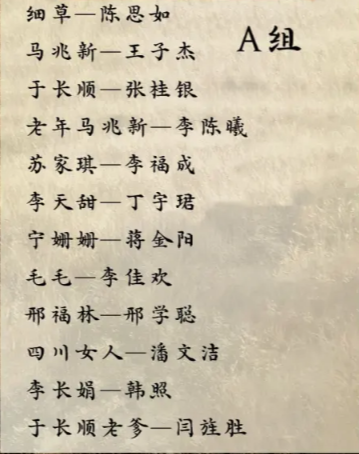 细草—陈思如
A组
马兆新—王子杰
于长顺—张桂银
老年马兆新—李陈曦
苏家琪—李福成
李天甜—丁宇珺
宁姗姗—蒋金阳
毛毛—李佳欢
邢福林—邢学聪
四川女人—潘文洁
李长娟—韩照
于长顺老爹—闫旌胜